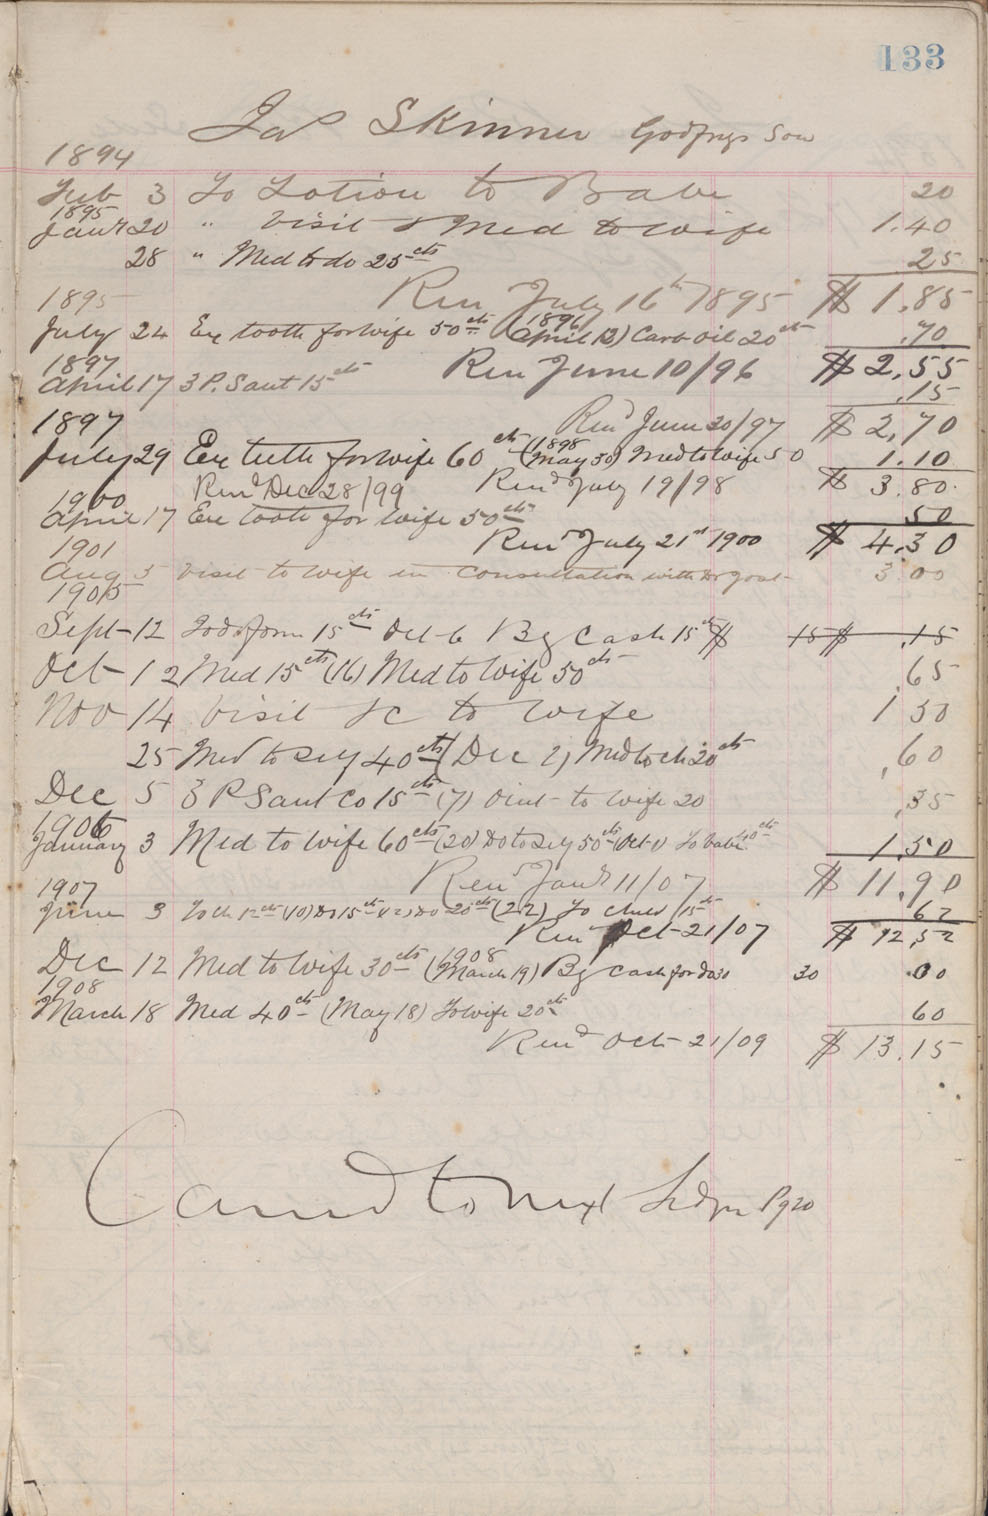 133
Jas Skinner Godfreys Son
1894
Feb 3 To Lotion to Babe 20
1895
Jany 20 " Visit & Med to wife 1.40
28 " Med to do 25cts 25
Ren July 16th 1895 $ 1.85
1895
July 24 Exe tooth for wife 50cts (1896 April 13) Carb oil 20cts .70
Ren June 10/96 $ 2,55
1897
April 17 3 P. Saut 15cts .15
Rend June 20/97 $ 2,70
1897
July 29 Exe teeth for wife 60cts (1898 May 30) Med to wife 50 1.10
Rend Dec 28/99 Rend July 19/98 $ 3.80.
1900
April 17 Exe tooth for wife 50cts 50
Rend July 21st 1900 $ 4.30
1901
Aug 3 Visit to wife in Consultation with Dr 3 00
1905
Sept 12 Iodoform 15cts Oct 6 By Cash 15cts $ 15 $ .15
Oct 12 Med 15cts (16) Med to Wife 50cts .65
Nov 14 Visit &c to wife 1 50
25 Med to Self 40cts (Dec 2) Med to ch 20cts .60
Dec 5 3 P Saut Co 15cts (7) Oint to wife 20 .35
1906
January 3 Med to Wife 60cts (20) Do to Self 50cts (Oct 1) To babe 40cts 1.50
Rend Jany 11/07 $ 11,90
1907
June 3 To ch 12cts (10) Do 15cts (12) Do 20cts (22) To child 15cts 62
Rend Oct 21/07 $ 12,52
Dec 12 Med to Wife 30cts (1908 March 19) By cash for Do 30 30 00
1908
March 18 Med 40cts (May 18) To wife 20cts 60
Rend Oct 21/09 $ 13.15
Carried to next Ledger Pg 20